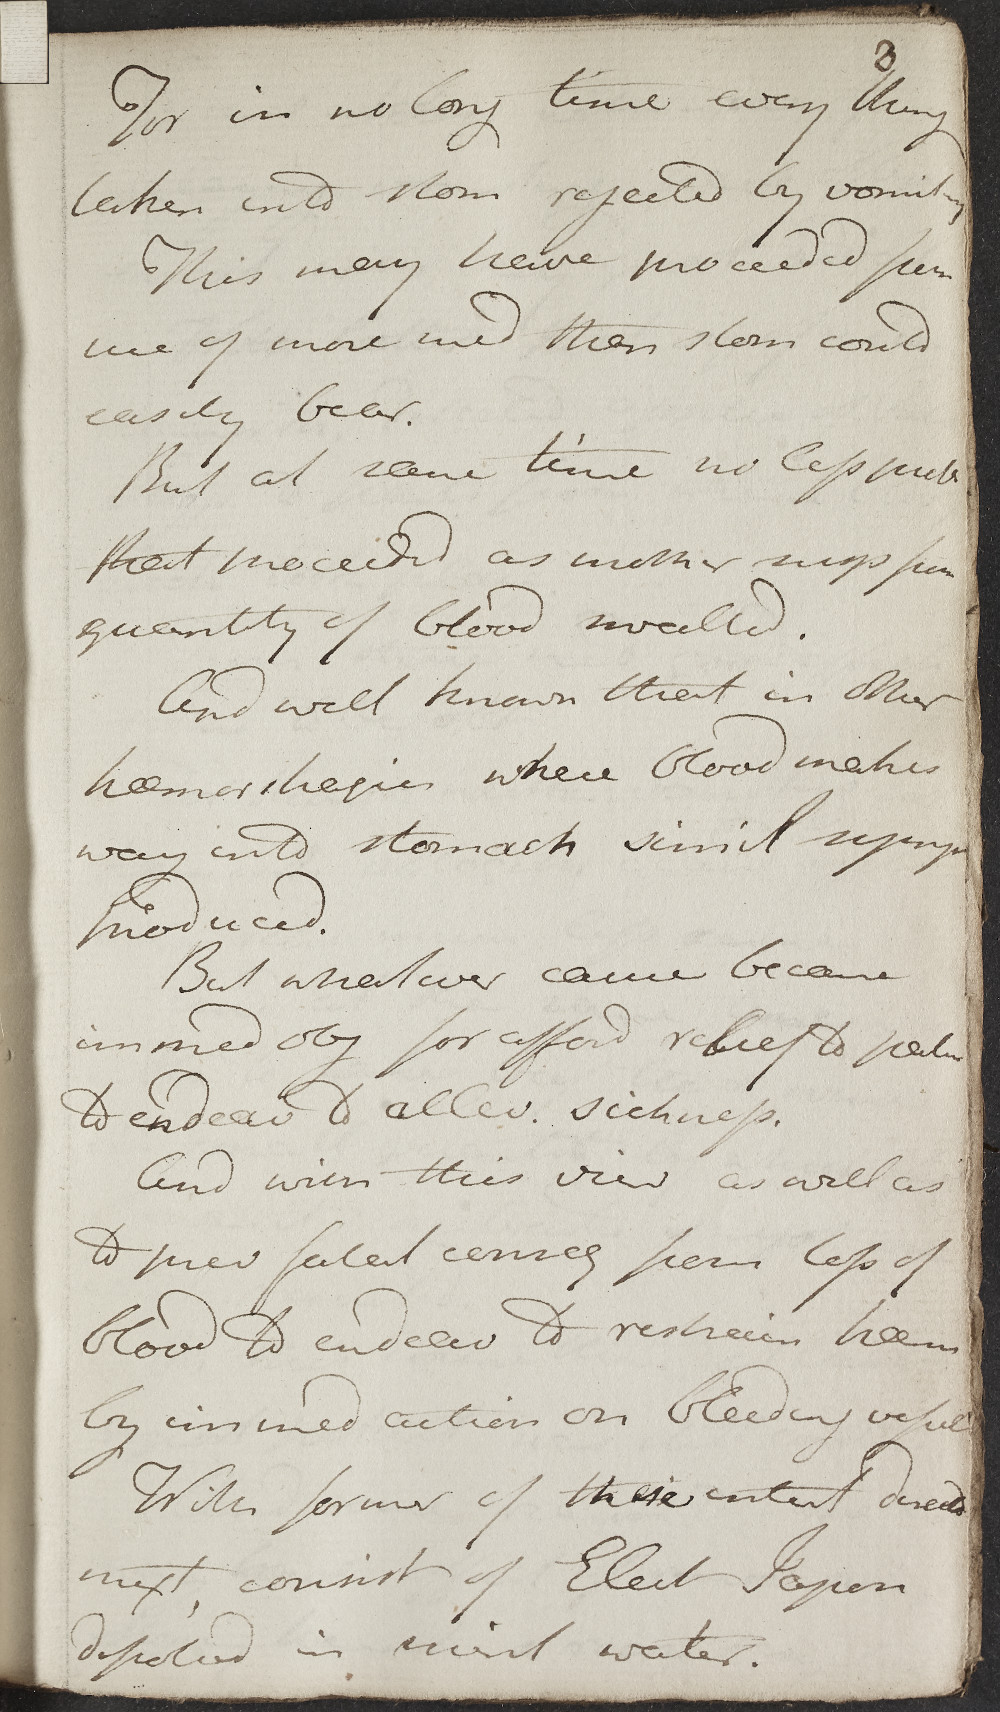 3
For in no long time every thing
taken into stom rejected by vomiting
This may have proceeded from
use of more med than stom could
easily bear.
But at same time no less prob
that proceeded as  from
quantity of blood swalled.
And well known that in other
hæmorrhagies where blood makes
way into stomach simil
produced.
But whatever cause became
immed obj for afford relief to patien
to endeav to allev. sickness.
And with this view as well as
to prev fatal conseq from loss of
blood to endeav to restrain hæm
by immed action on bleeding vessel
With former of these intent direct
mixt, consist of Elect Japon
dissolved in mint water.